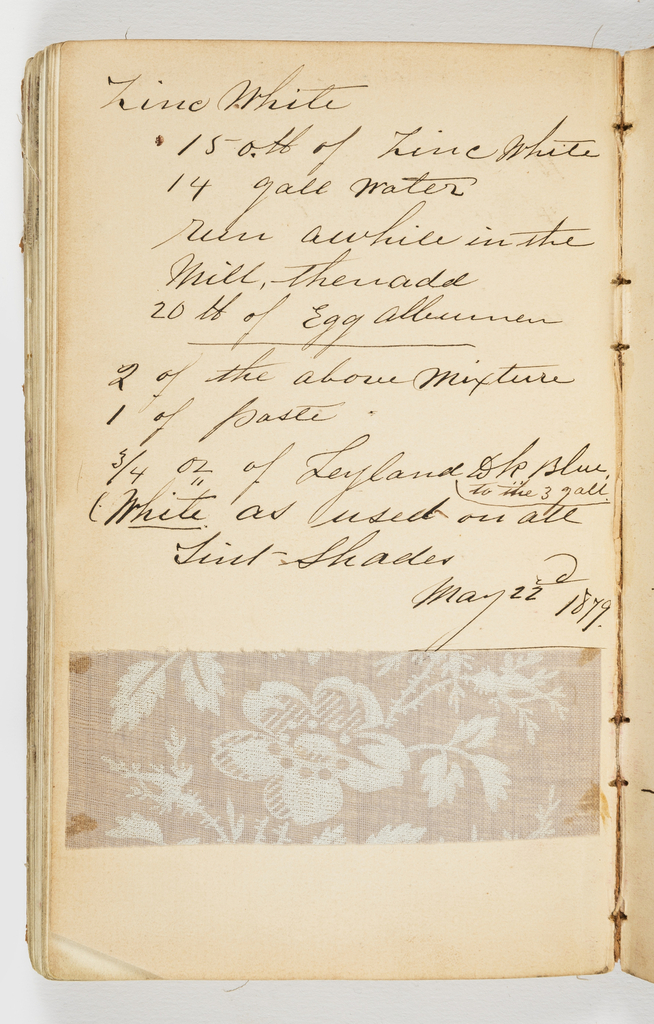 Zinc White
150 ℔ of Zinc White
14 gall Water
run awhile in the
Mill, then add
20 ℔ of Egg Albumen
2 of the above Mixture
1 of paste
3/4 oz of Leyland Dk Blue.
to the 3 gall.
(White as used on all
Tint-Shades
May 22d 1879.